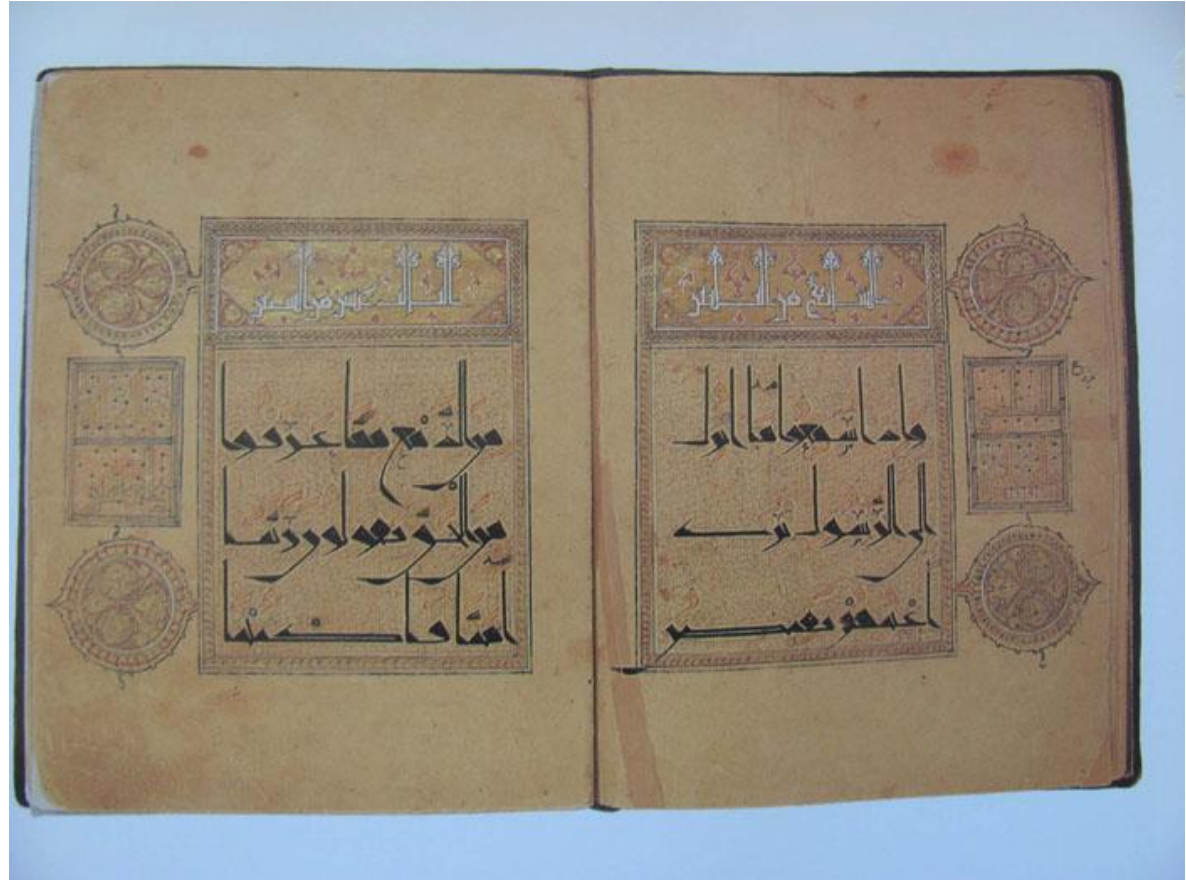 السابع من الثلثين
واذا سمعوا ما انزل
الى الرسول ترى
اعينهم تفيض
الثلث عشر من الستين
من الدمع مما عرفوا
من الحق يقولون ربنا
امنا فاكتبنا